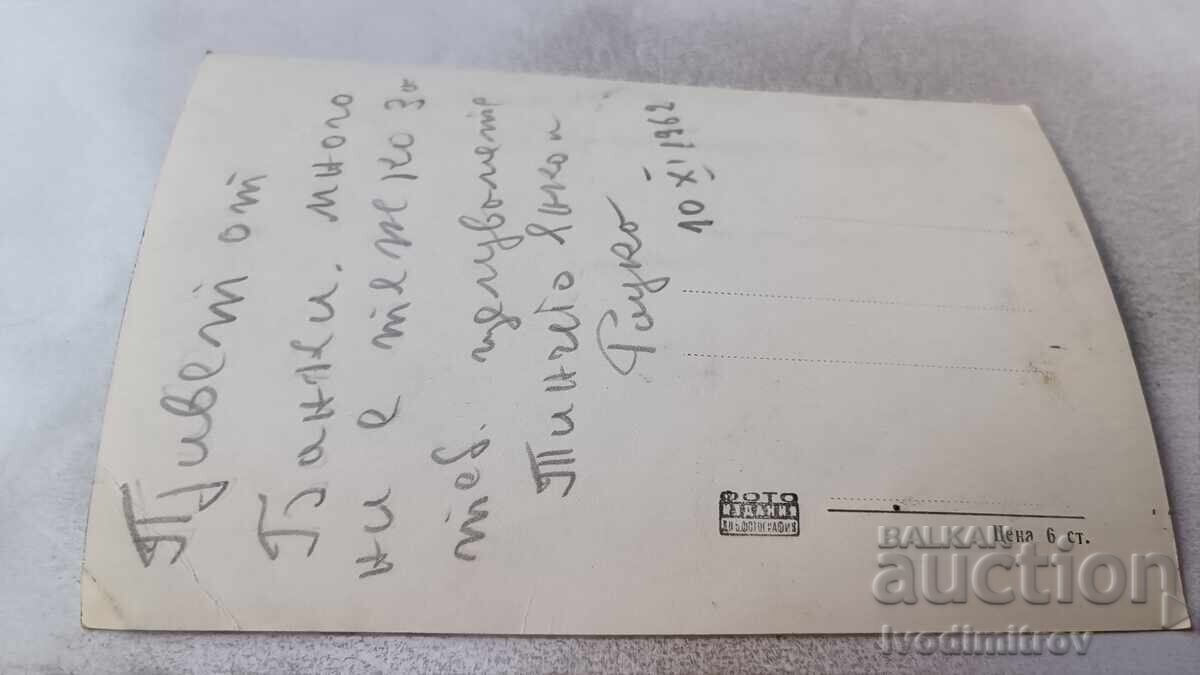 Привет от
Банки. много
ни е тежко за
теб. целуваме те
Тинчето Янко и
Гацко
10 XI 1962
ФОТО
ИЗДАНИЯ
ДП БЪЛГ. ФОТОГРАФИЯ
Цена 6 ст.
BALKAN
auction
Ivodimitrov